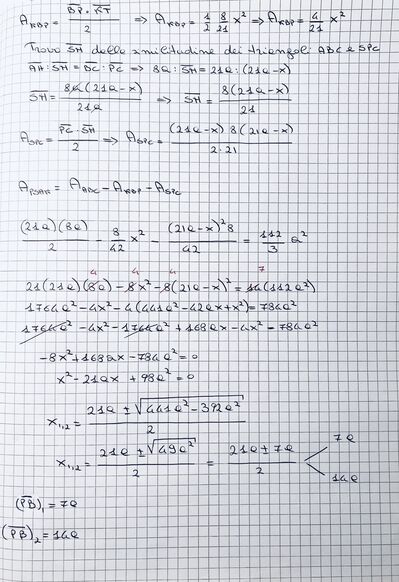 A_KBP = BP · KT / 2 ⇒ A_KBP = 1/2 8/21 x² ⇒ A_KBP = 4/21 x²
Trovo SH dalla similitudine dei triangoli ABC e SPC
AH : SH = BC : PC ⇒ 8a : SH = 21a : (21a-x)
SH = 8a(21a-x) / 21a ⇒ SH = 8(21a-x) / 21
A_SPC = PC · SH / 2 ⇒ A_SPC = (21a-x) 8(21a-x) / 2·21
= A_ABC - A_KBP - A_SPC
(21a)(8a) / 2 - 8/42 x² - (21a-x)²8 / 42 = 112/3 a²
4 4 4 7
21(21a)(8a) - 8x² - 8(21a-x)² = 14(112a²)
1764a² - 4x² - 4(441a² - 42ax + x²) = 784a²
1764a² - 4x² - 1764a² + 168ax - 4x² = 784a²
-8x² + 168ax - 784a² = 0
x² - 21ax + 98a² = 0
x₁,₂ = 21a ± √441a² - 392a² / 2
x₁,₂ = 21a ± √49a² / 2 = 21a ± 7a / 2
7a
14a
(PB)₁ = 7a
(PB)₂ = 14a